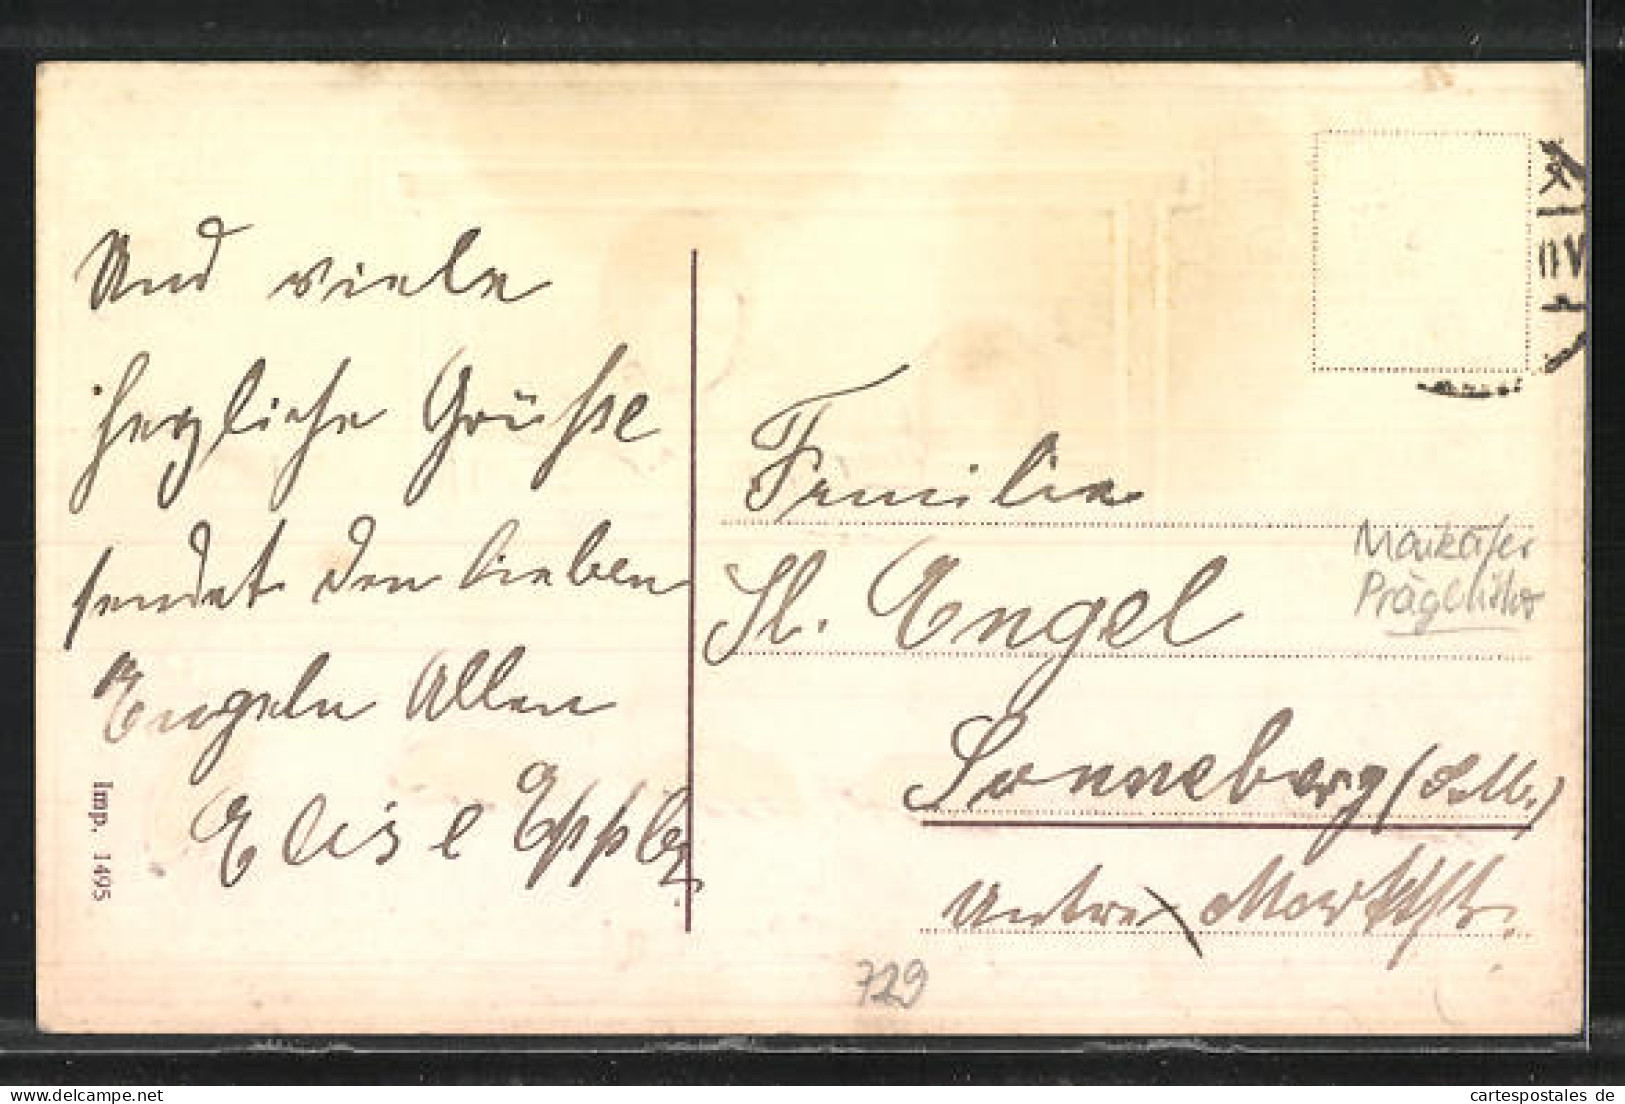 Und viele
herzliche Grüße
sendet den lieben
Engeln Allen
Elise Eppler
Imp. 1495
Familie
Engel
Sonneberg (S.M.)
Untre Marktstr.
Maikäfer
729
cartespostales de